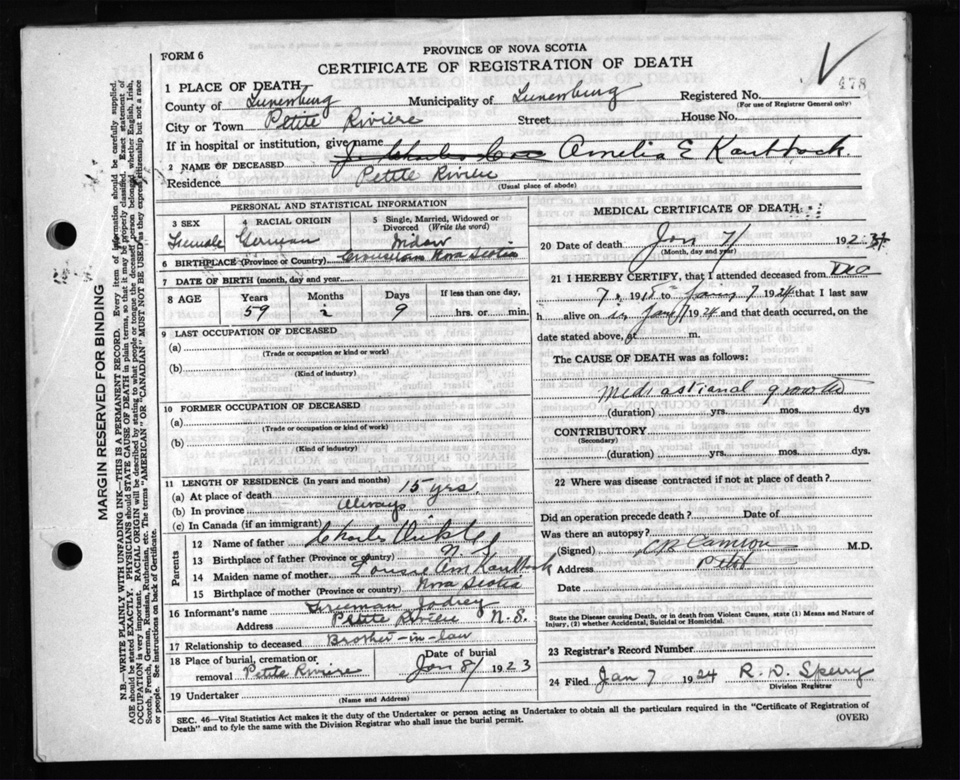 FORM 6
PROVINCE OF NOVA SCOTIA
CERTIFICATE OF REGISTRATION OF DEATH
478
1 PLACE OF DEATH
County of Lunenburg Municipality of Lunenburg Registered No.
(For use of Registrar General only)
City or Town Petite Riviere Street House No.
If in hospital or institution, give name
2 NAME OF DECEASED Amelia E
Residence Petite Riviere
(Usual place of abode)
PERSONAL AND STATISTICAL INFORMATION
3 SEX 4 RACIAL ORIGIN 5 Single, Married, Widowed or Divorced (Write the word)
Female German Widow
6 BIRTHPLACE (Province or Country) Nova Scotia
7 DATE OF BIRTH (month, day and year)
8 AGE Years Months Days If less than one day,
59 2 9 hrs. or min.
9 LAST OCCUPATION OF DECEASED
(a)
(Trade or occupation or kind or work)
(b)
(Kind of industry)
10 FORMER OCCUPATION OF DECEASED
(a)
(Trade or occupation or kind of work)
(b)
(Kind of industry)
11 LENGTH OF RESIDENCE (In years and months)
(a) At place of death 15 yrs.
(b) In province Always
(c) In Canada (if an immigrant)
Parents
12 Name of father Charles
13 Birthplace of father (Province or country) N. S.
14 Maiden name of mother
15 Birthplace of mother (Province or country) Nova Scotia
16 Informant's name Freeman
Address Petite Riviere N.S.
17 Relationship to deceased Brother-in-law
18 Place of burial, cremation or removal Petite Riviere Date of burial Jan 8/ 1923
19 Undertaker
(Name and Address)
MEDICAL CERTIFICATE OF DEATH
20 Date of death Jan 7/ 192
(Month, day and year)
21 I HEREBY CERTIFY, that I attended deceased from Dec
to 7 1924 that I last saw
h alive on 1924 and that death occurred, on
date stated above, at m.
The CAUSE OF DEATH was as follows:
Mediastinal growth
(duration) yrs. mos. dys
CONTRIBUTORY
(Secondary)
(duration) yrs. mos. dys.
22 Where was disease contracted if not at place of death?
Did an operation precede death? Date of
Was there an autopsy?
(Signed) M.D.
Address
Date
State the Disease causing Death, or in death from Violent Causes, state (1) Means and Nature of Injury, (2) whether Accidental, Suicidal or Homicidal.
23 Registrar's Record Number
24 Filed Jan 7 1924 R. D. Sperry
Division Registrar
SEC. 46—Vital Statistics Act makes it the duty of the Undertaker or person acting as Undertaker to obtain all the particulars required in the "Certificate of Registration of
Death" and to fyle the same with the Division Registrar who shall issue the burial permit.
(OVER)
MARGIN RESERVED FOR BINDING
N.B.—WRITE PLAINLY WITH UNFADING INK—THIS IS A PERMANENT RECORD. Every item of information should be carefully supplied.
AGE should be stated EXACTLY. PHYSICIANS should STATE CAUSE OF DEATH in plain terms, so that it may be properly classified. Exact statement of
OCCUPATION is very important. RACIAL ORIGIN will be described by stating to what people or tongue the deceased person belonged, whether English, Irish,
Scotch, French, German, Russian, Ruthenian, etc. The terms "AMERICAN" or "CANADIAN" MUST NOT BE USED as they express citizenship but not a race
or people. See instructions on back of Certificate.